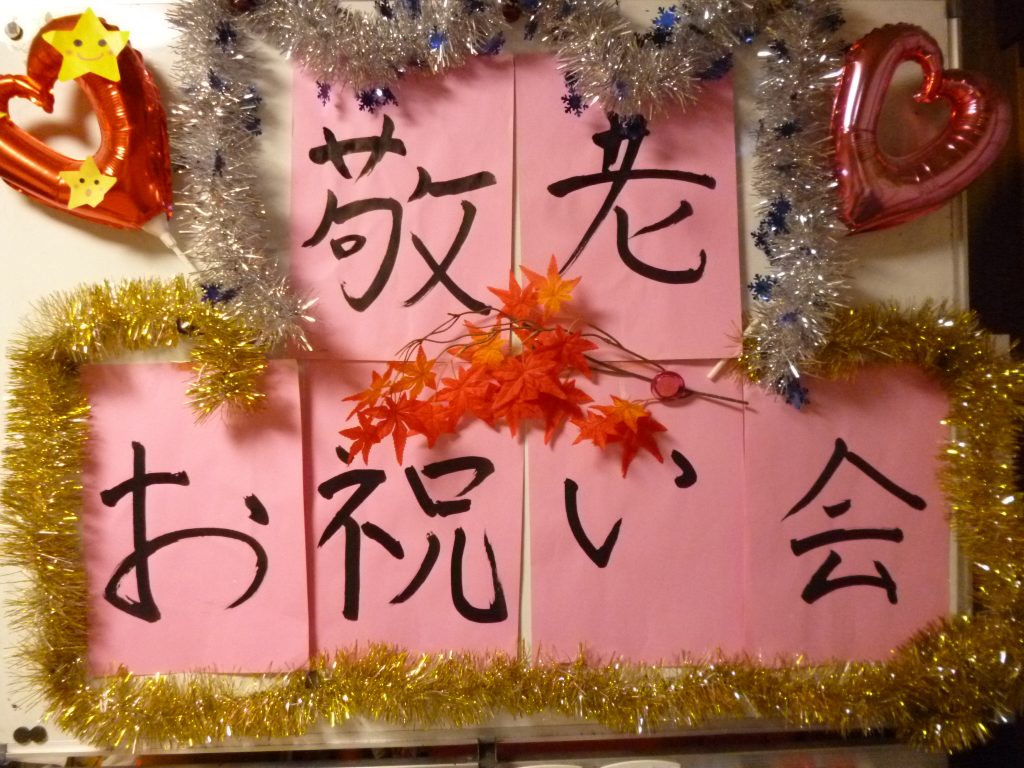 敬老
お祝い会